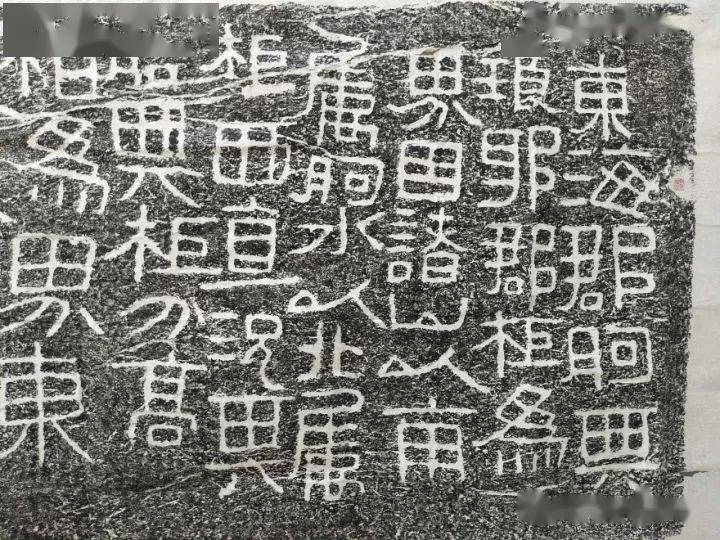 東海郡朐與
琅邪郡柜為
界因諸山以南
屬朐水以北屬
柜西直況其
與柜分高
為界東